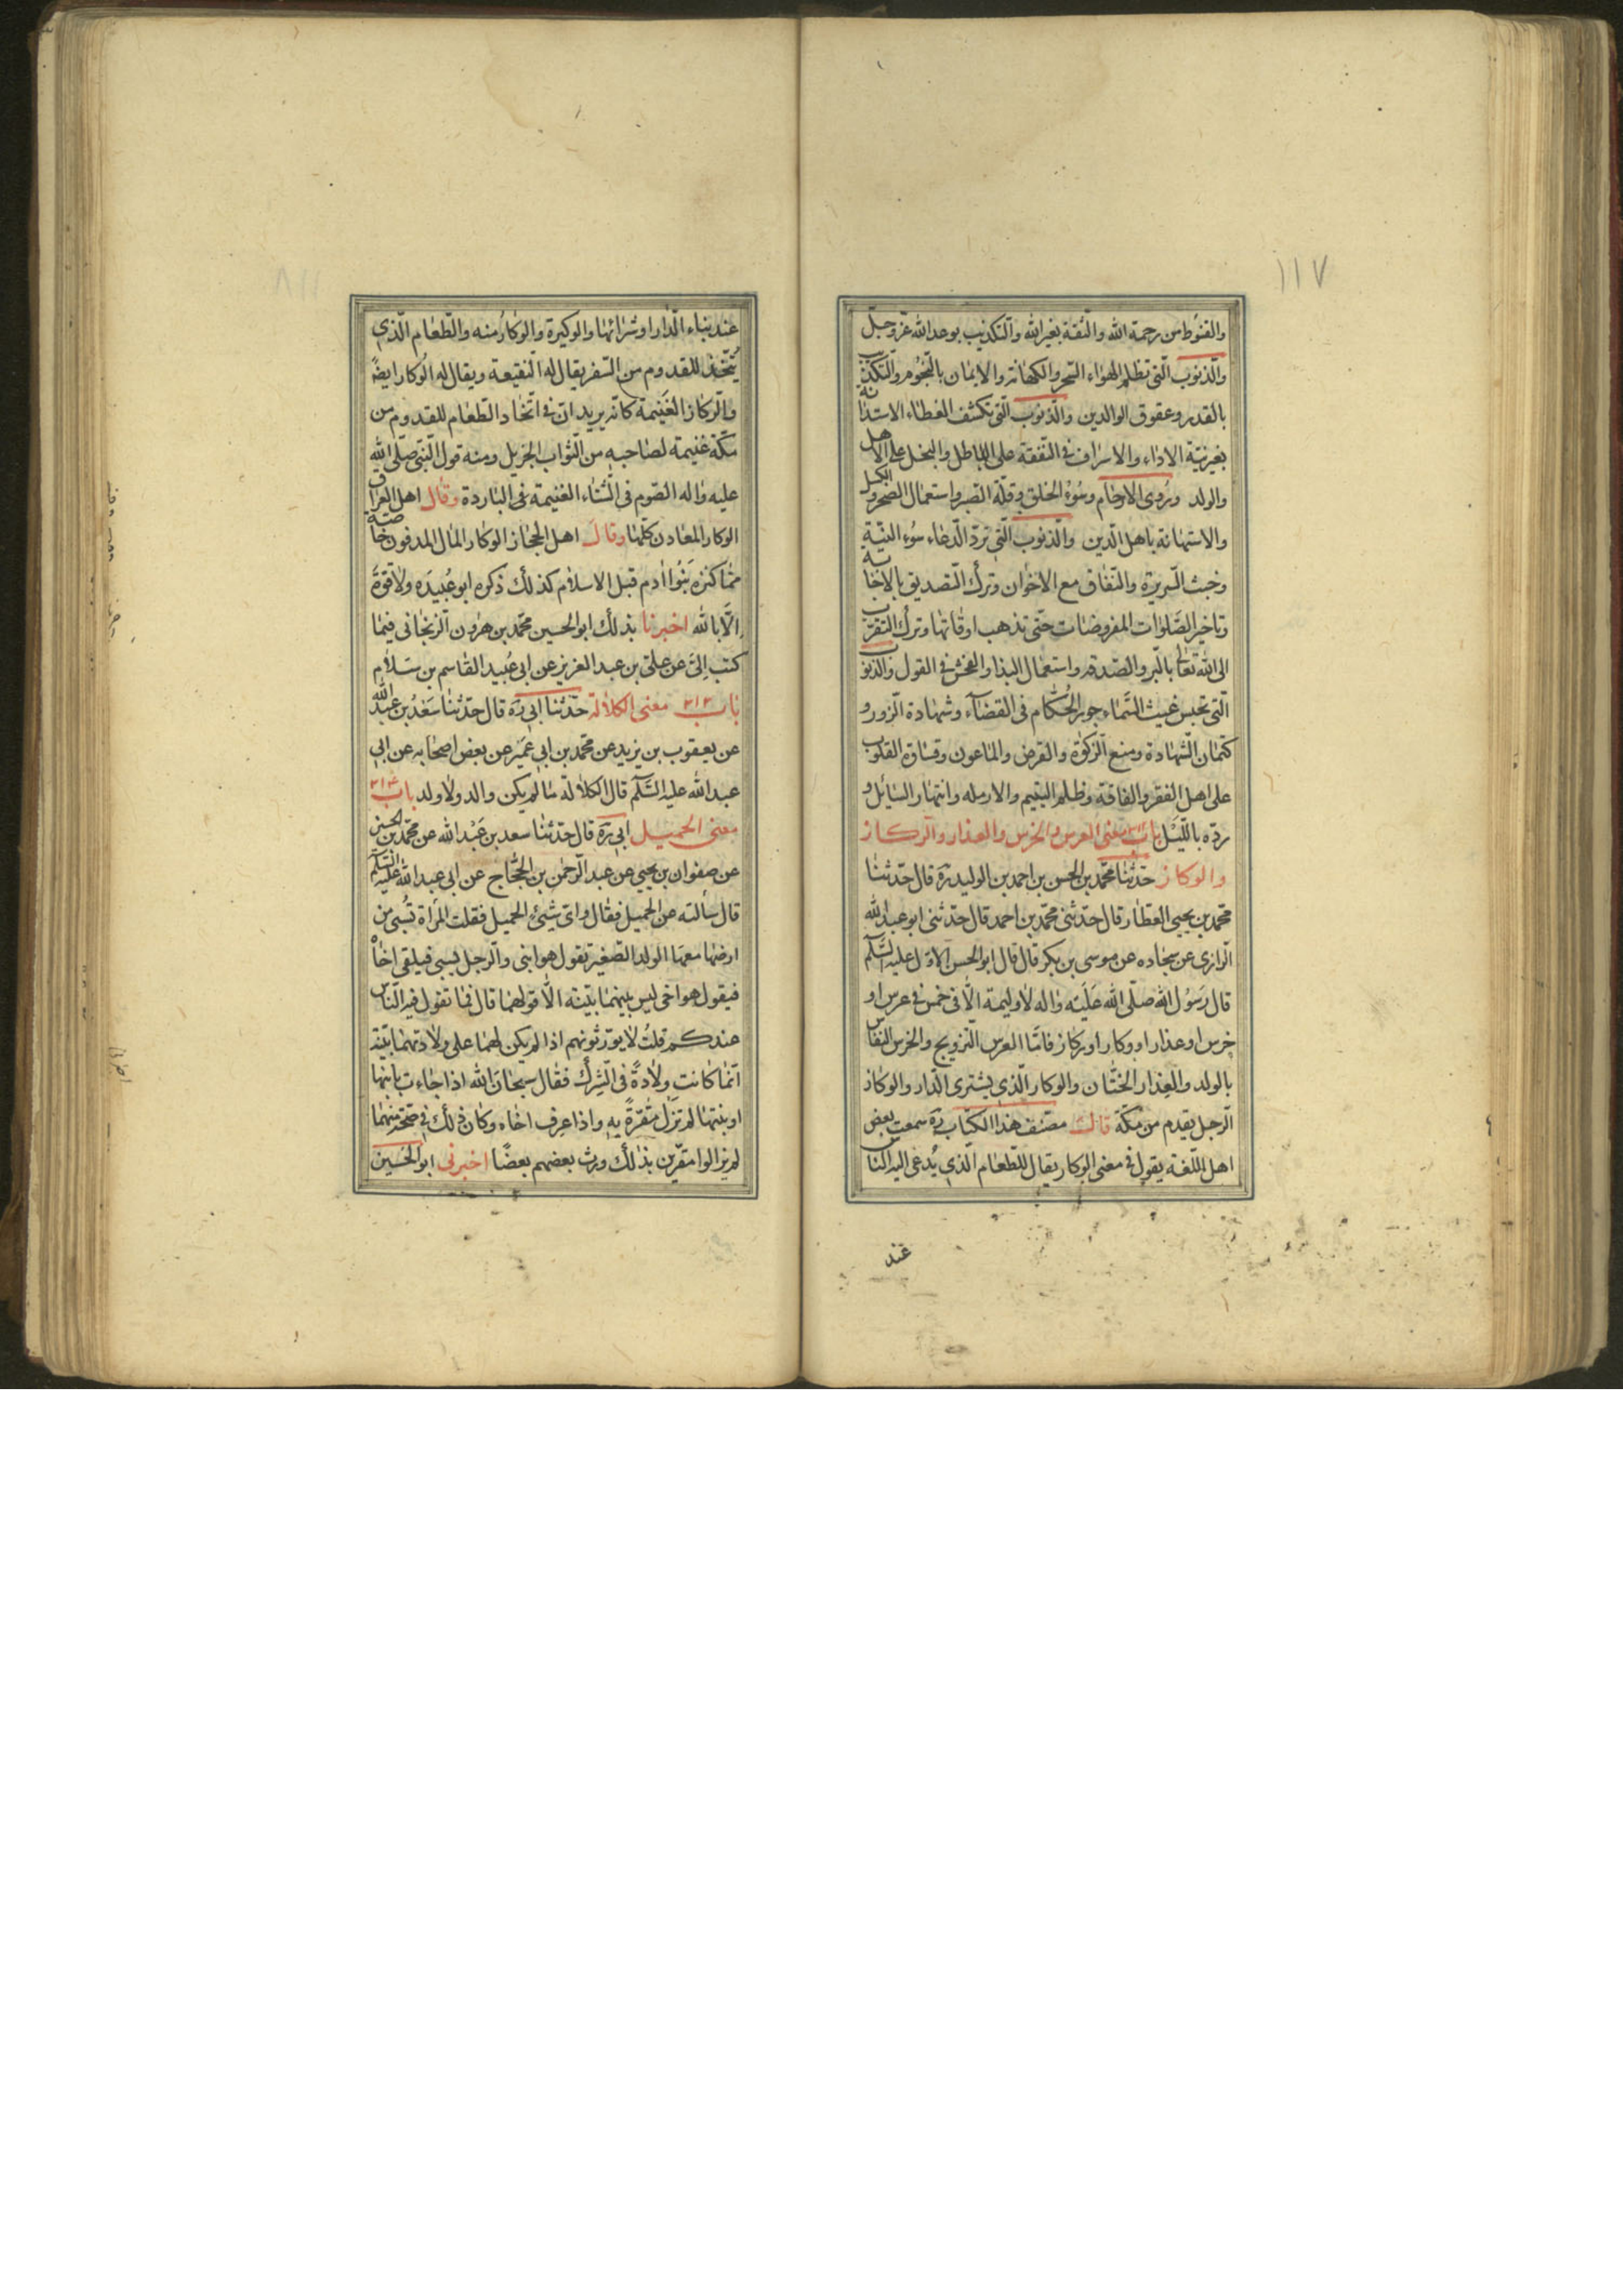 ١١٧
والقنوط من رحمة الله والثقة بغير الله والتكذيب بوعد الله عزوجل
والذنوب التى تظلم الهواء السحر والكهانة والايمان بالنجوم والتكذيب
بالقدر وعقوق الوالدين والذنوب التى تكشف الغطاء الاستدانة
بغير نية الاداء والاسراف فى النفقة على الباطل والبخل على الاهل
والولد وذوى الارحام وسوء الخلق وقلة الصبر واستعمال الضجر والكسل
والاستهانة باهل الدين والذنوب التى ترد الدعاء سوء النية
وخبث السريرة والنفاق مع الاخوان وترك التصديق بالاجابة
وتاخير الصلوات المفروضات حتى تذهب اوقاتها وترك التقرب
الى الله تعالى بالبر والصدقه واستعمال البذا والفحش فى القول والذنوب
التى تحبس غيث السماء جور الحكام فى القضاء وشهادة الزور و
كتمان الشهادة ومنع الزكوة والقرض والماعون وقساوة القلوب
على اهل الفقر والفاقة وظلم اليتيم والارمله وانتهار السائل و
رده بالليل باب معنى العرس والخرس والعذار والركاز
والوكاز حدثنا محمد بن الحسن بن احمد بن الوليد ره قال حدثنا
محمد بن يحيى العطار قال حدثنى محمد بن احمد قال حدثنى ابو عبد الله
الرازى عن سجاده عن موسى بن بكر قال قال ابو الحسن الاول عليه السلم
قال رسول الله صلى الله عليه واله لا وليمة الا فى خمس فى عرس او
خرس او عذار او وكار او ركاز فاما العرس التزويج والخرس النفاس
بالولد والعذار الختان والوكار الذى يشترى الدار والوكاز
الرجل يقدم من مكة قال مصنف هذا الكتاب ره سمعت بعض
اهل اللغة يقول فى معنى الوكار يقال للطعام الذى يدعى اليه الناس
عند
١١٨
عند بناء الدار او شرائها والوكيرة والوكار منه والطعام الذى
يتخذ للقدوم من السفر يقال له النقيعة ويقال له الوكار ايضا
والركاز الغنيمة كانه يريد ان فى اتخاد الطعام للقدوم من
مكة غنيمة لصاحبه من الثواب الجزيل ومنه قول النبى صلى الله
عليه واله الصوم فى الشتاء الغنيمة فى الباردة وقال اهل العراق
الوكار المعادن كلها وقال اهل الحجاز الوكار المال المدفون خاصة
مما كنزه بنوا ادم قبل الاسلام كذلك ذكره ابو عبيده ولا قوة
الا بالله اخبرنا بذلك ابو الحسين محمد بن هرون الزنجانى فيما
كتب الى عن على بن عبد العزيز عن ابى عبيد القاسم بن سلام
باب ٣١٢ معنى الكلالة حدثنا ابى ره قال حدثنا سعد بن عبد الله
عن يعقوب بن يزيد عن محمد بن ابى عمير عن بعض اصحابه عن ابى
عبد الله عليه السلم قال الكلالة ما لم يكن والد ولا ولد باب ٣١٣
معنى الحميل ابى ره قال حدثنا سعد بن عبد الله عن محمد بن الحسين
عن صفوان بن يحيى عن عبد الرحمن بن الحجاج عن ابى عبد الله عليه السلم
قال سألته عن الحميل فقال واى شيئ الحميل فقلت المرأة تسبى من
ارضها معها الولد الصغير تقول هو ابنى والرجل يسبى فيلقى اخاه
فيقول هو اخى ليس بينهما بينة الا قولهما قال فما تقول فيه الناس
عندكم قلت لا يورثونهم اذا لم يكن لهما على ولادتهما بينة
انما كانت ولادة فى الشرك فقال سبحان الله اذا جاءت بابنها
او بنتها لم تزل مقرة به واذا عرف اخاه وكان ذلك فى صحة منهما
لم يزالوا مقرين بذلك ورث بعضهم بعضا اخبرنى ابو الحسين